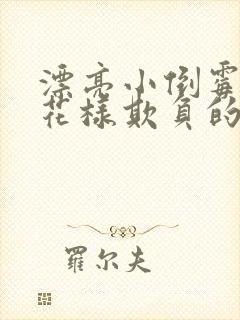 漂亮小倒霉
花样欺负的
羅尔夫